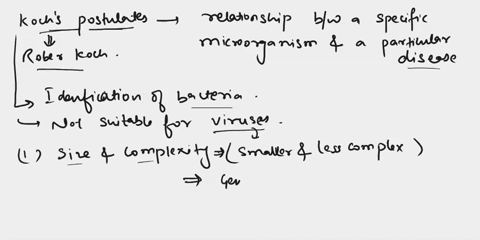 Koch's postulates → relationship b/w a specific
microorganism & a particular
disease
⇓
Rober Koch.
→ Idenfication of bacteria.
→ Not suitable for viruses.
(1) Size & complexity ⇒ (smaller & less complex)
⇒ Gen